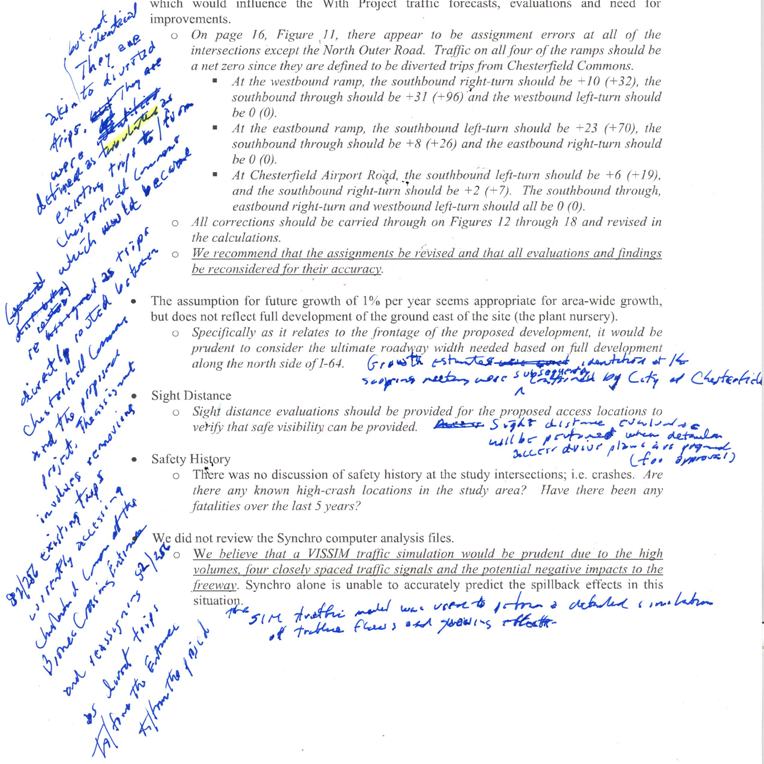 which would influence the With Project traffic forecasts, evaluations and need for
improvements.
o On page 16, Figure 11, there appear to be assignment errors at all of the
intersections except the North Outer Road. Traffic on all four of the ramps should be
a net zero since they are defined to be diverted trips from Chesterfield Commons.
▪ At the westbound ramp, the southbound right-turn should be +10 (+32), the
southbound through should be +31 (+96) and the westbound left-turn should
be 0 (0).
▪ At the eastbound ramp, the southbound left-turn should be +23 (+70), the
southbound through should be +8 (+26) and the eastbound right-turn should
be 0 (0).
▪ At Chesterfield Airport Road, the southbound left-turn should be +6 (+19),
and the southbound right-turn should be +2 (+7). The southbound through,
eastbound right-turn and westbound left-turn should all be 0 (0).
o All corrections should be carried through on Figures 12 through 18 and revised in
the calculations.
o We recommend that the assignments be revised and that all evaluations and findings
be reconsidered for their accuracy.
• The assumption for future growth of 1% per year seems appropriate for area-wide growth,
but does not reflect full development of the ground east of the site (the plant nursery).
o Specifically as it relates to the frontage of the proposed development, it would be
prudent to consider the ultimate roadway width needed based on full development
along the north side of I-64.
Growth estimates identified at
scoping meeting were subsequently confirmed by City of Chesterfield
• Sight Distance
o Sight distance evaluations should be provided for the proposed access locations to
verify that safe visibility can be provided.
Sight distance evaluations
will be performed when detailed
access drive plans are prepared
(for approval)
• Safety History
o There was no discussion of safety history at the study intersections; i.e. crashes. Are
there any known high-crash locations in the study area? Have there been any
fatalities over the last 5 years?
• We did not review the Synchro computer analysis files.
o We believe that a VISSIM traffic simulation would be prudent due to the high
volumes, four closely spaced traffic signals and the potential negative impacts to the
freeway. Synchro alone is unable to accurately predict the spillback effects in this
situation.
the SIM traffic model was used to perform a detailed simulation
of traffic flows and queuing effects
but not
identical
They are
akin to diverted
trips. They are
were
defined as
existing trips to/from
Chesterfield Commons
which would become
reassigned as trips
directly routed between
Chesterfield Commons
and the proposed
project. The assignment
involves removing
82/256 existing trips
currently accessing
Chesterfield Commons at the
Crossing Entrance
and reassigning 82/256
as trips
to/from the Entrance
to/from the